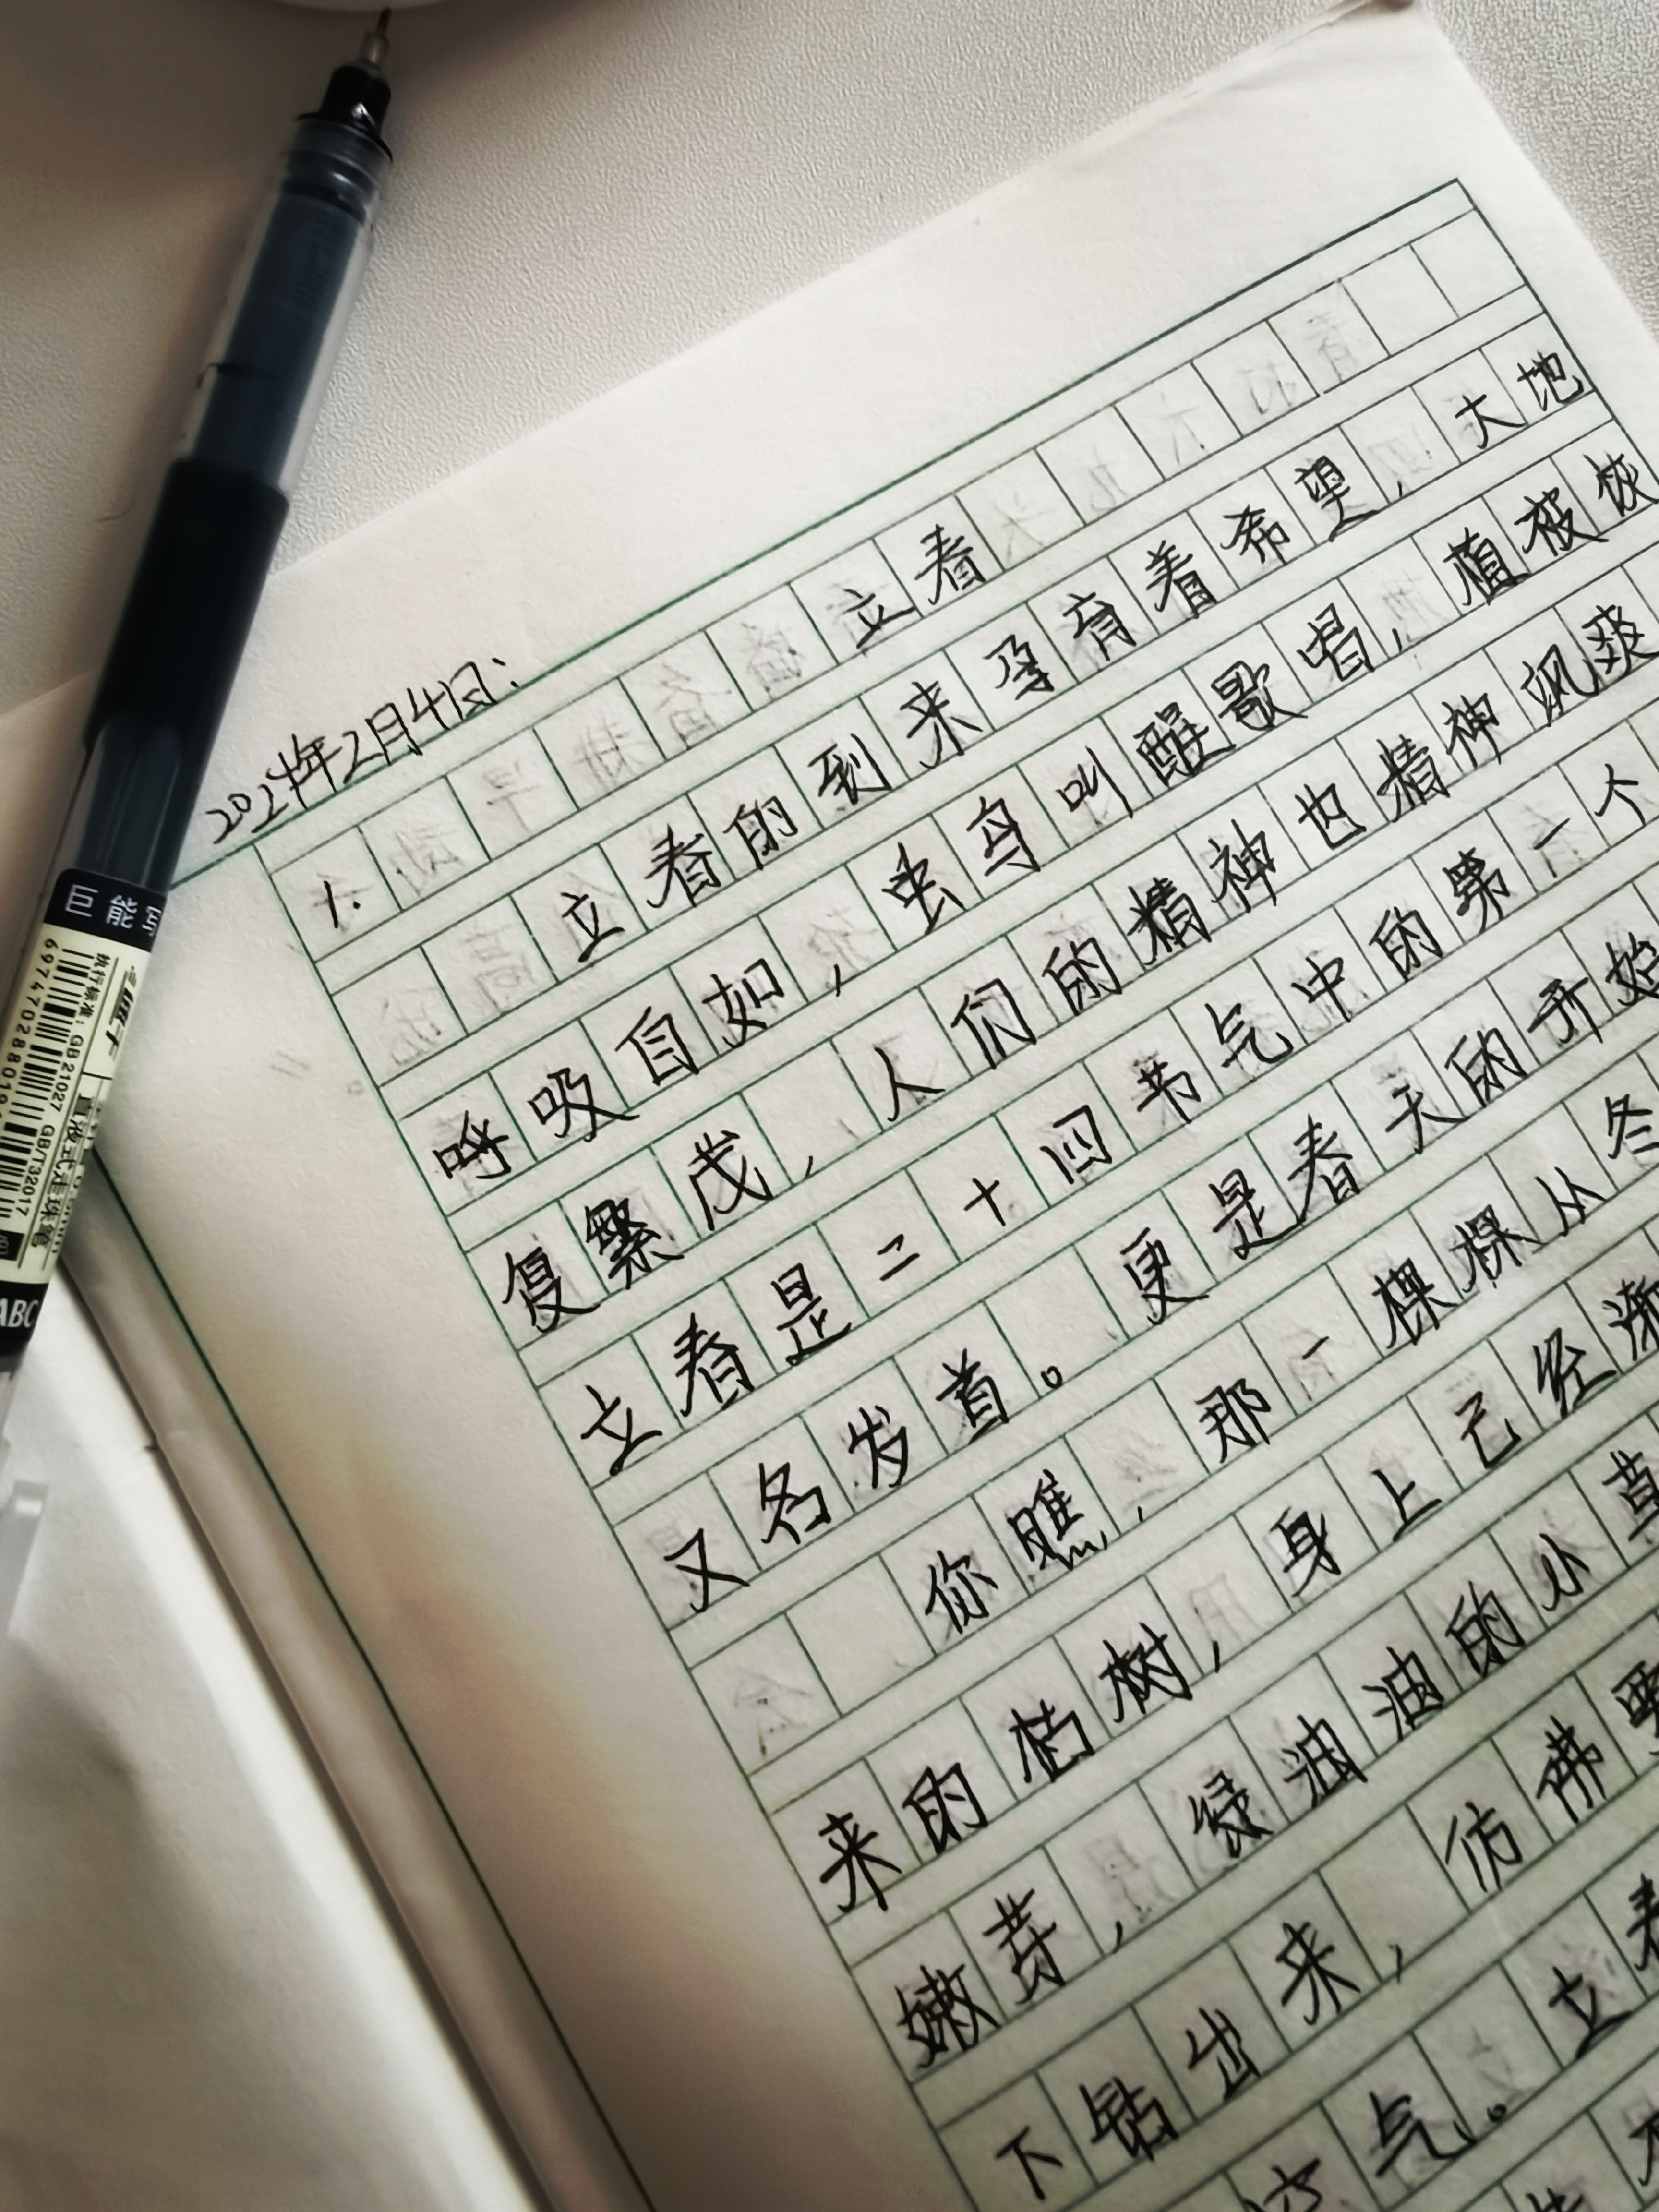 2024年2月4日:
1. 立春
立春的到来孕育着希望,大地
呼吸自如,虫鸟叫醒歌唱,植被恢
复繁茂,人们的精神也精神飒爽
立春是二十四节气中的第一个
又名岁首。更是春天的开始
你瞧,那一棵棵从冬
来的枯树,身上已经渐
嫩芽,绿油油的小草
下钻出来,仿佛要
气。立春
巨能写
执行标准: GB 21027 GB/T 32017
直液式走珠笔
ABC